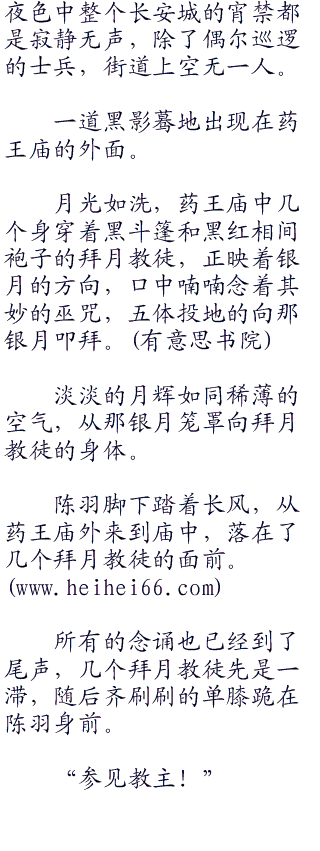 夜色中整个长安城的宵禁都
是寂静无声，除了偶尔巡逻
的士兵，街道上空无一人。
一道黑影蓦地出现在药
王庙的外面。
月光如洗，药王庙中几
个身穿着黑斗篷和黑红相间
袍子的拜月教徒，正映着银
月的方向，口中喃喃念着其
妙的巫咒，五体投地的向那
银月叩拜。(有意思书院)
淡淡的月辉如同稀薄的
空气，从那银月笼罩向拜月
教徒的身体。
陈羽脚下踏着长风，从
药王庙外来到庙中，落在了
几个拜月教徒的面前。
(www.heihei66.com)
所有的念诵也已经到了
尾声，几个拜月教徒先是一
滞，随后齐刷刷的单膝跪在
陈羽身前。
“参见教主！”